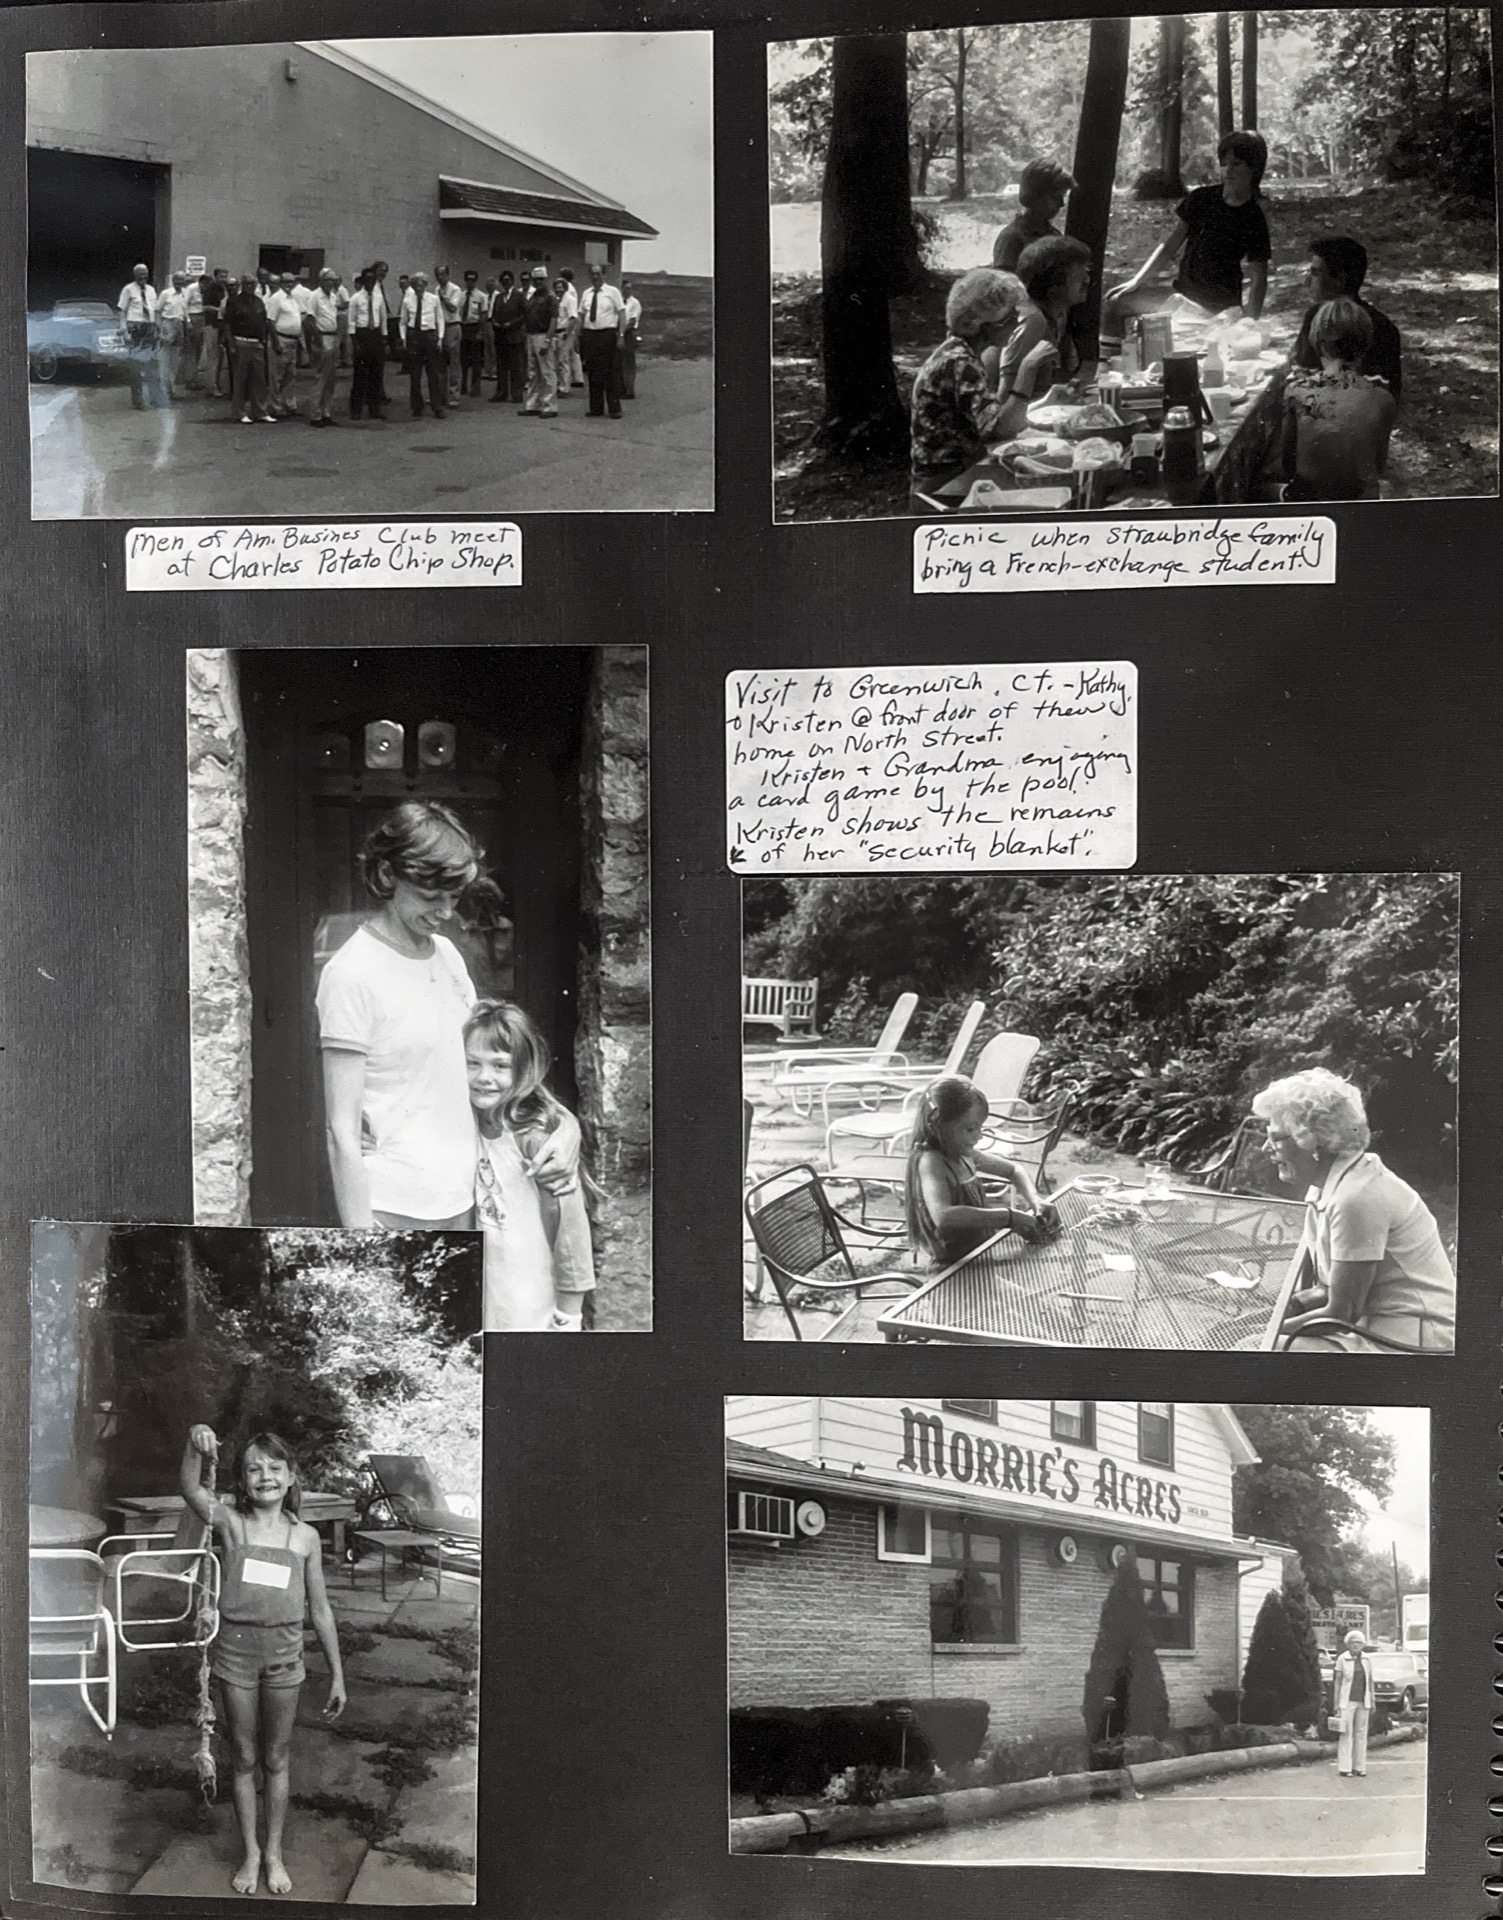 Men of Am. Busines Club meet
at Charles Potato Chip Shop.
Picnic when Strawbridge family
bring a French-exchange student.
Visit to Greenwich, Ct. - Kathy
+ Kristen @ front door of their
home on North Street.
Kristen + Grandma enjoying
a card game by the pool.
Kristen shows the remains
of her "security blanket".
MORRIE'S ACRES